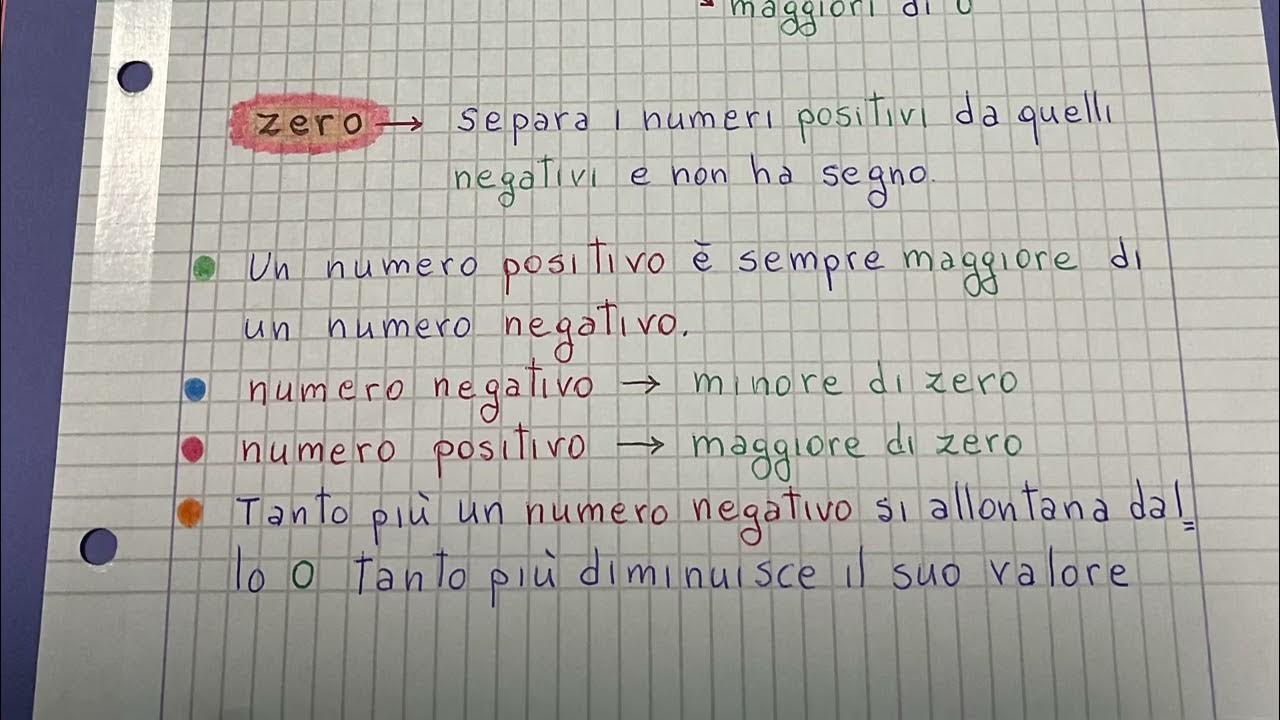 maggiori di 0
zero → separa i numeri positivi da quelli
negativi e non ha segno.
Un numero positivo è sempre maggiore di
un numero negativo.
numero negativo → minore di zero
numero positivo → maggiore di zero
Tanto più un numero negativo si allontana dal=
lo 0 tanto più diminuisce il suo valore